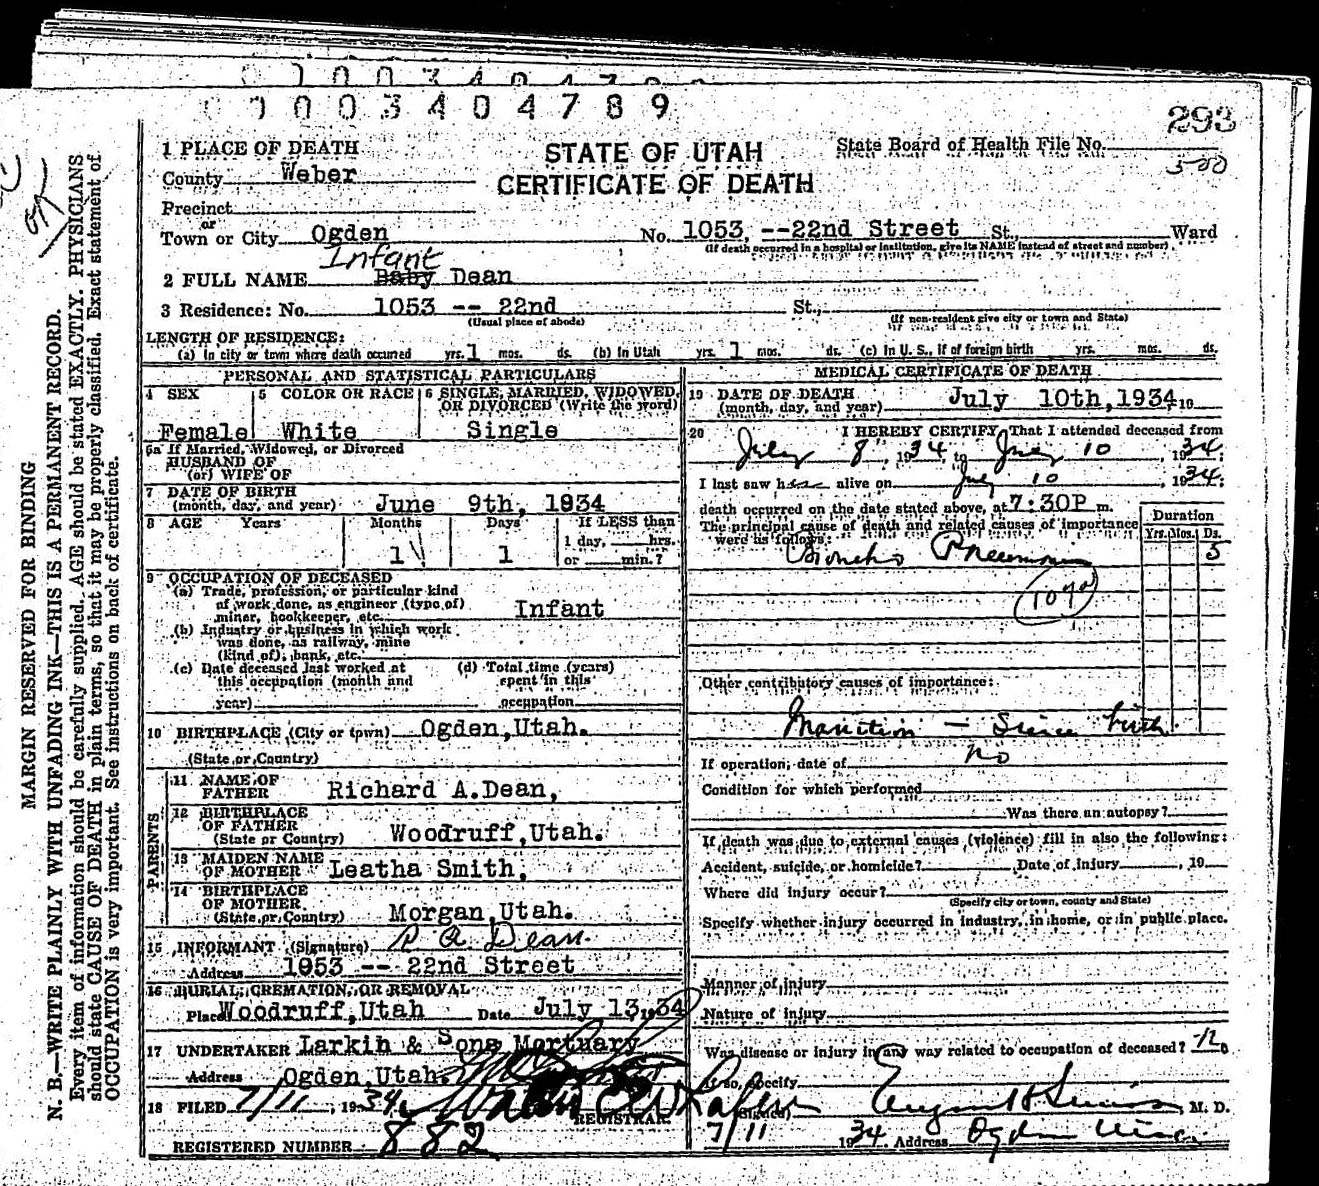 0003404789
293
1 PLACE OF DEATH
STATE OF UTAH
CERTIFICATE OF DEATH
State Board of Health File No.
500
County Weber
Precinct
or
Town or City Ogden No. 1053, --22nd Street St., Ward
(If death occurred in a hospital or institution, give its NAME instead of street and number)
Infant
2 FULL NAME Baby Dean
3 Residence: No. 1053 -- 22nd St.,
(Usual place of abode) (If non-resident give city or town and State)
LENGTH OF RESIDENCE:
(a) In city or town where death occurred yrs. 1 mos. ds. (b) In Utah yrs. 1 mos. ds. (c) In U. S., if of foreign birth yrs. mos. ds.
PERSONAL AND STATISTICAL PARTICULARS
4 SEX 5 COLOR OR RACE 6 SINGLE, MARRIED, WIDOWED, OR DIVORCED (Write the word)
Female White Single
6a If Married, Widowed, or Divorced
HUSBAND OF
(or) WIFE OF
7 DATE OF BIRTH
(month, day, and year) June 9th, 1934
8 AGE Years Months Days If LESS than
1 day, hrs.
1 1 or min.?
9 OCCUPATION OF DECEASED
(a) Trade, profession, or particular kind
of work done, as engineer (type of)
miner, bookkeeper, etc. Infant
(b) Industry or business in which work
was done, as railway, mine
(kind of), bank, etc.
(c) Date deceased last worked at (d) Total time (years)
this occupation (month and spent in this
year) occupation
10 BIRTHPLACE (City or town) Ogden, Utah.
(State or Country)
PARENTS
11 NAME OF
FATHER Richard A.Dean,
12 BIRTHPLACE
OF FATHER
(State or Country) Woodruff, Utah.
13 MAIDEN NAME
OF MOTHER Leatha Smith,
14 BIRTHPLACE
OF MOTHER
(State or Country) Morgan, Utah.
15 INFORMANT (Signature) R A Dean.
Address 1053 -- 22nd Street
16 BURIAL, CREMATION, OR REMOVAL
Place Woodruff, Utah Date July 13, 1934
17 UNDERTAKER Larkin & Sons Mortuary
Address Ogden, Utah.
18 FILED 7/11, 1934
REGISTRAR.
REGISTERED NUMBER 882
MEDICAL CERTIFICATE OF DEATH
19 DATE OF DEATH
(month, day, and year) July 10th, 1934 19
20 I HEREBY CERTIFY, That I attended deceased from
July 8, 1934, to July 10, 1934;
I last saw h alive on July 10, 1934;
death occurred on the date stated above, at 7:30P m.
The principal cause of death and related causes of importance
were as follows:
Duration
Yrs. Mos. Ds.
Broncho Pneumonia 5
107a
Other contributory causes of importance:
Inanition — Since birth
If operation, date of No
Condition for which performed
Was there an autopsy?
If death was due to external causes (violence) fill in also the following:
Accident, suicide, or homicide? Date of injury , 19
Where did injury occur?
(Specify city or town, county and State)
Specify whether injury occurred in industry, in home, or in public place.
Manner of injury
Nature of injury
Was disease or injury in any way related to occupation of deceased? No
If so, specify
(Signed) M. D.
7/11 1934 Address Ogden Utah
MARGIN RESERVED FOR BINDING
N. B.—WRITE PLAINLY WITH UNFADING INK—THIS IS A PERMANENT RECORD.
Every item of information should be carefully supplied. AGE should be stated EXACTLY. PHYSICIANS
should state CAUSE OF DEATH in plain terms, so that it may be properly classified. Exact statement of
OCCUPATION is very important. See instructions on back of certificate.